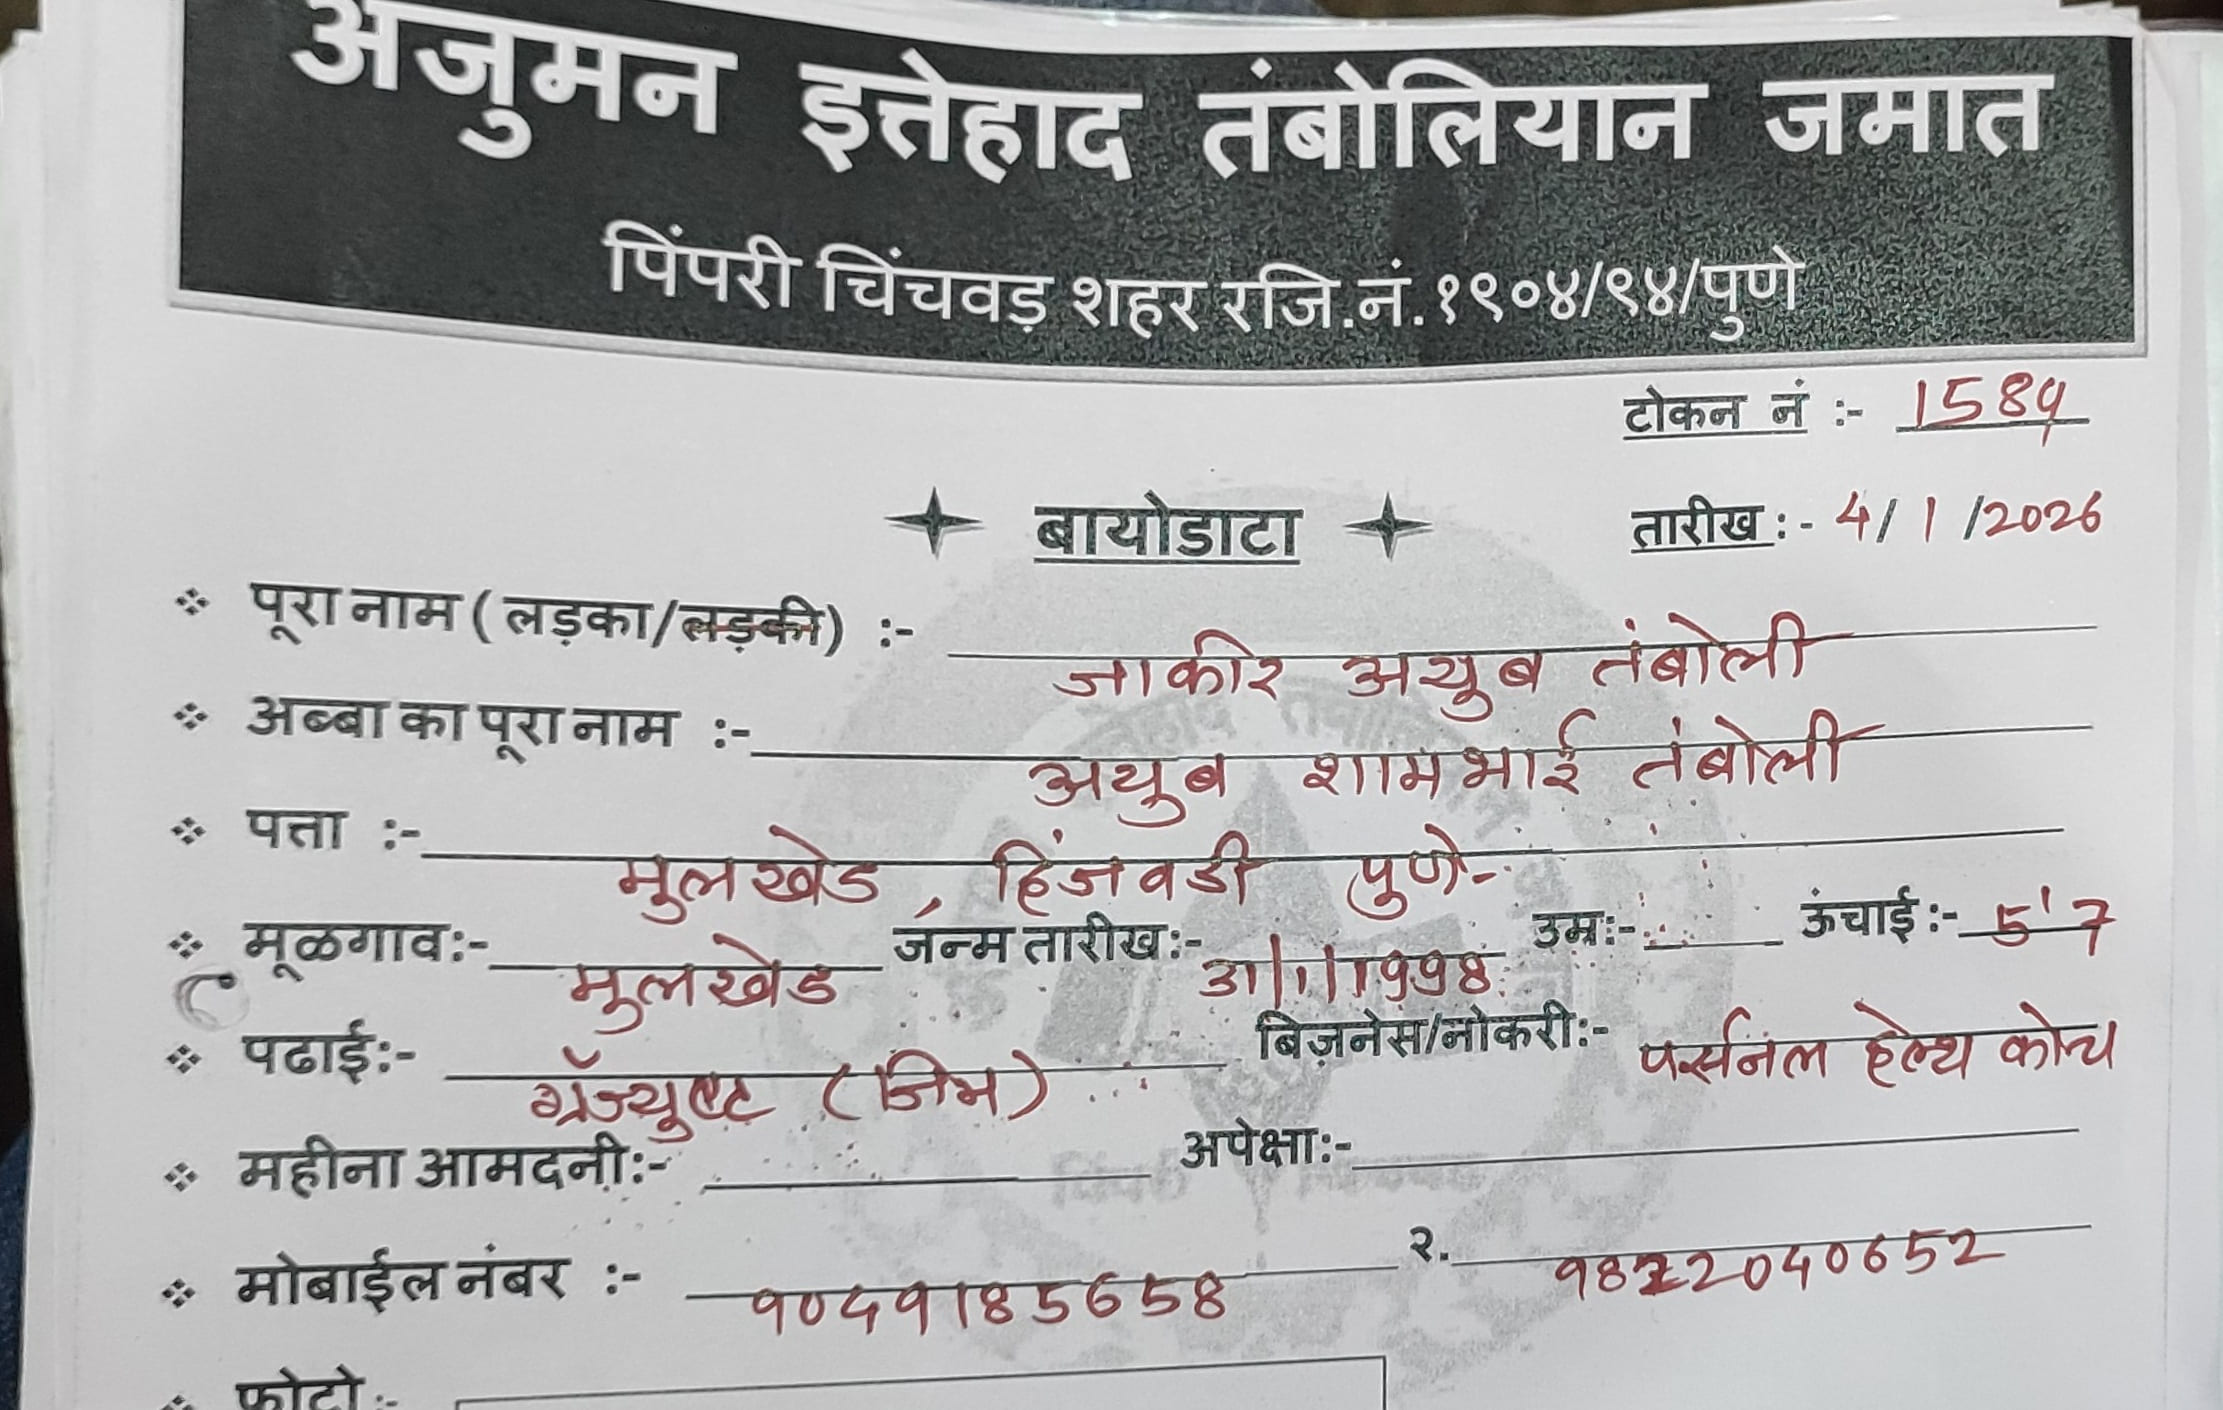 अजुमन इत्तेहाद तंबोलियान जमात
पिंपरी चिंचवड़ शहर रजि.नं.१९०४/९४/पुणे
टोकन नं :- 1589
तारीख :- 4/1/2026
बायोडाटा
पूरा नाम ( लड़का/लड़की) :- जाकीर अयुब तंबोली
अब्बा का पूरा नाम :- अयुब शामभाई तंबोली
पत्ता :- मुलखेड, हिंजवडी पुणे-
मूळगाव:- मुलखेड जन्म तारीख:- 31/1/1998 उम्र:- ऊंचाई:- 5'7
पढाई:- ग्रॅज्युएट (जिम) बिज़नेस/नोकरी:- पर्सनल हेल्थ कोच
महीना आमदनी:- अपेक्षा:-
मोबाईल नंबर :- 9049185658 २. 9822040652
फोटो :-